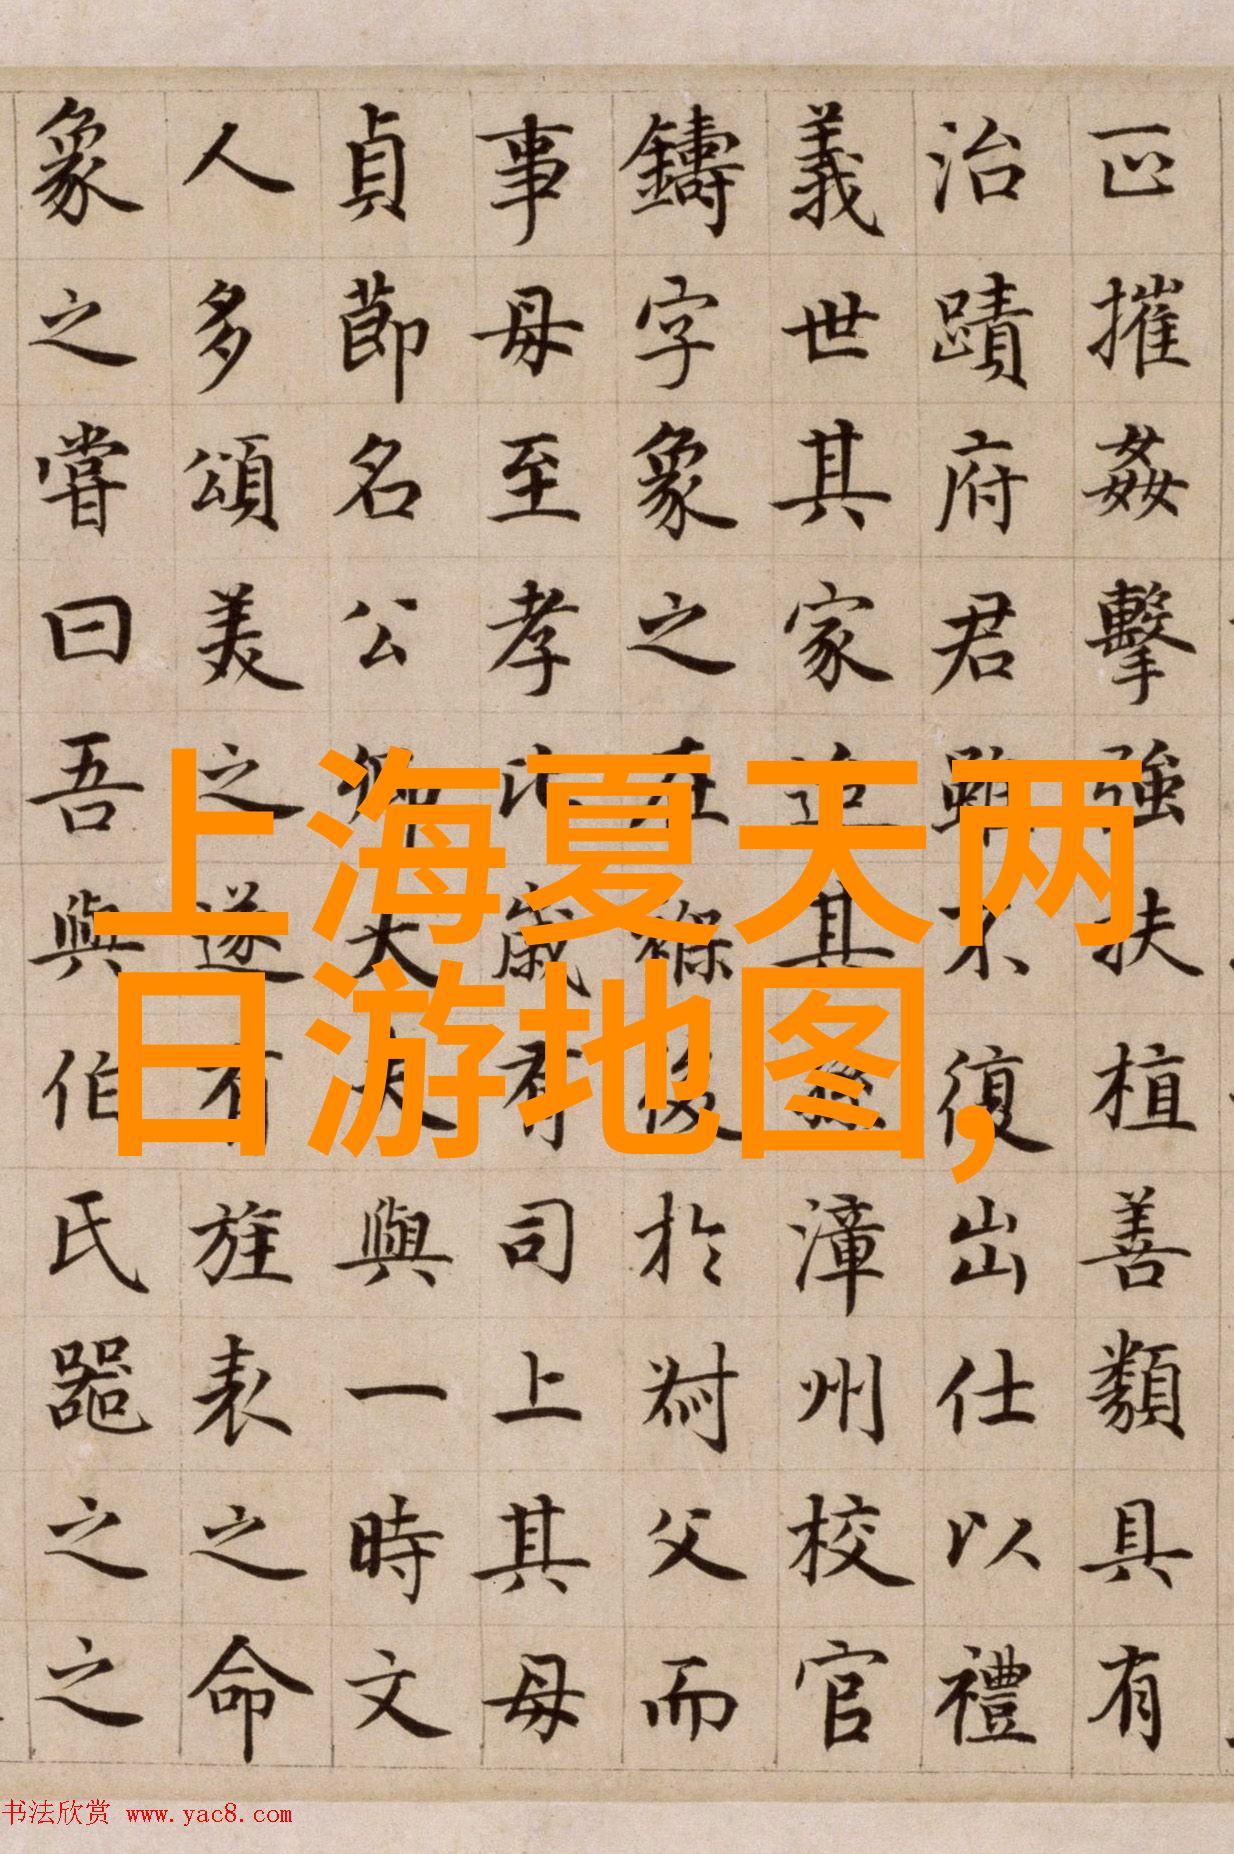 摧姦擊強扶植善類具有
治蹟府君雖不復出仕以禮
義世其家其漳州校官
鑄字象之在褓後於父而
事母至孝比歲有司上其母
貞節名公卿大夫與一時文
人多頌美之遂有旌表之命
象之嘗曰吾與伯氏噐之之
上海夏天两
日游地图,
书法欣赏 www.yac8.com